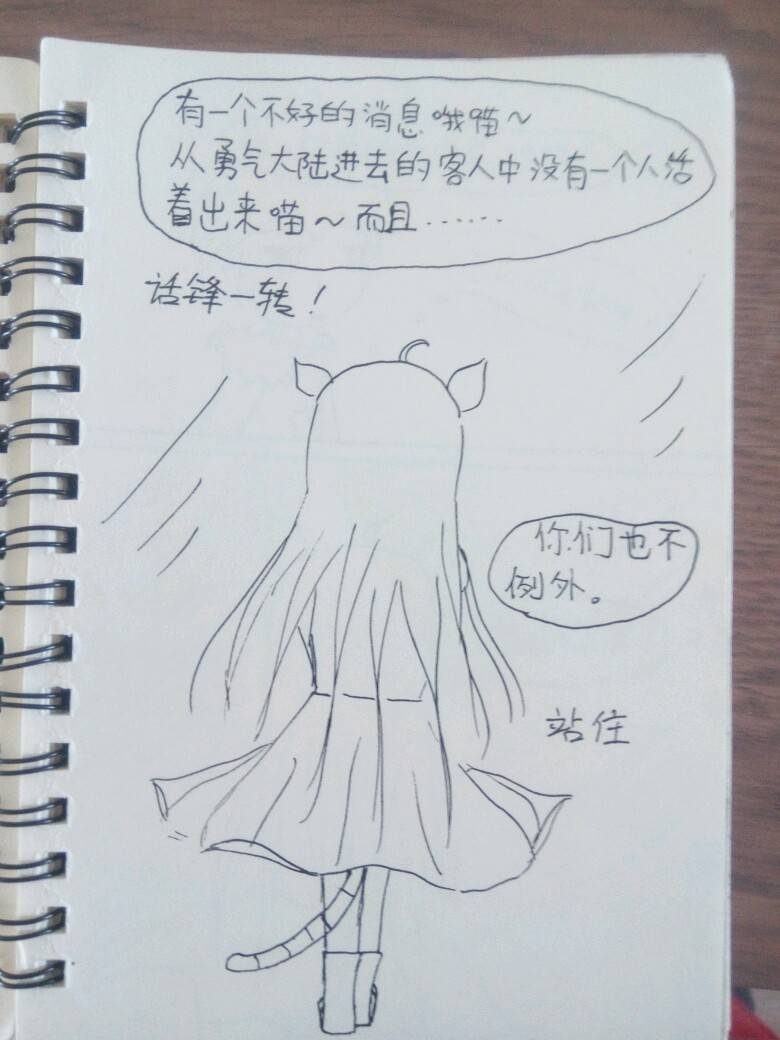 有一个不好的消息哦喵～
从勇气大陆进去的客人中没有一个人活
着出来喵～而且……
话锋一转！
你们也不
例外。
站住